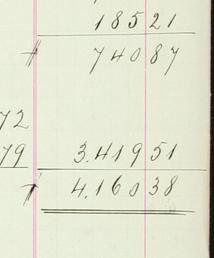 18521
74087
72
79 3.41951
4.16038